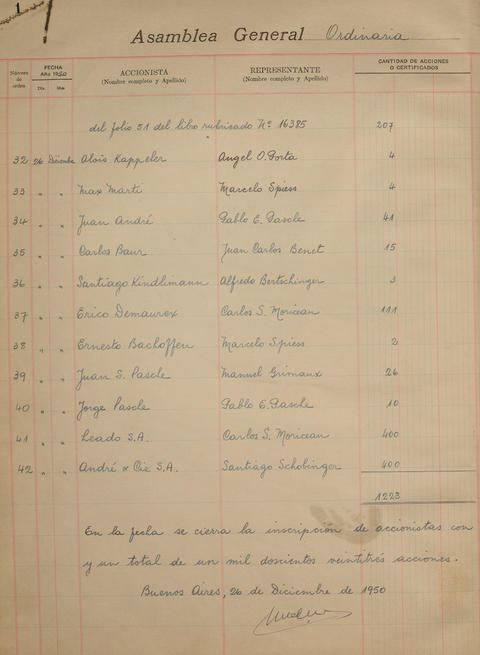 1
Asamblea General Ordinaria
Número de orden
FECHA
Año 1950
Día Mes
ACCIONISTA
(Nombre completo y Apellido)
REPRESENTANTE
(Nombre completo y Apellido)
CANTIDAD DE ACCIONES
O CERTIFICADOS
del folio 51 del libro rubrisado Nº 16385 207
32 26 Diciembre Alois Kappeler Angel O. Porta 4
33 " " Max Marti Marcelo Spiess 4
34 " " Juan André Pablo E. Pasche 41
35 " " Carlos Baur Juan Carlos Benet 15
36 " " Santiago Kindlimann Alfredo Bertschinger 3
37 " " Erico Demaurex Carlos S. Moricean 111
38 " " Ernesto Bachoffen Marcelo Spiess 2
39 " " Juan S. Pasche Manuel Grimaux 26
40 " " Jorge Pasche Pablo E. Pasche 10
41 " " Leado S.A. Carlos S. Moricean 400
42 " " André & Cie S.A. Santiago Schobinger 400
1223
En la fecha se cierra la inscripción de accionistas con
y un total de un mil doscientos veintitrés acciones.
Buenos Aires, 26 de Diciembre de 1950